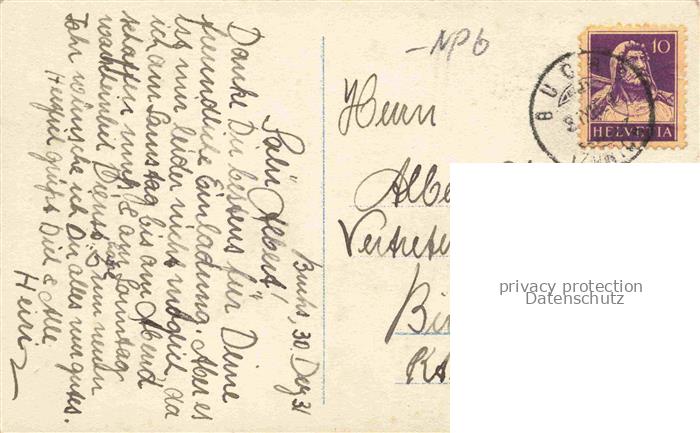 Buchs, 30. Dez 31
Salü Albert!
Danke Dir bestens für Deine
freundliche Einladung. Aber es
ist mir leider nicht möglich, da
ich am Samstag bis am Abend
schaffen muss & am Sonntag
Dienst
Zum neuen
Jahr wünsche ich Dir alles nur gutes.
Herzlich grüsst Dich & Alle
Heiri
-NPb
Herrn
Albe
Vertrete
Bi
Kt.
10
HELVETIA
BUCHS
privacy protection
Datenschutz